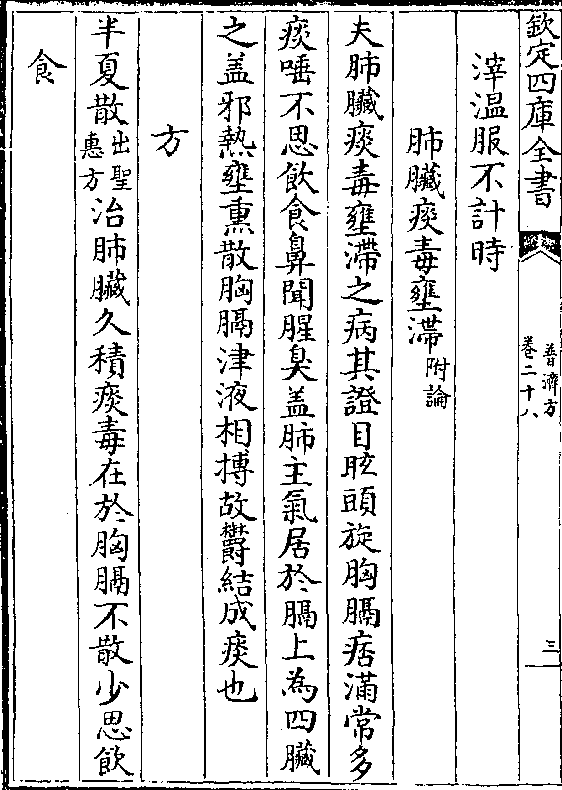 欽定四庫全書
普濟方
卷二十八
三
滓温服不計時
肺臟痰毒壅滯附論
夫肺臟痰毒壅滯之病其證目眩頭旋胸膈痞滿常多
痰唾不思飲食鼻聞腥臭盖肺主氣居於膈上為四臟
之盖邪熱壅熏散胸膈津液相搏故欝結成痰也
方
半夏散出聖惠方治肺臟久積痰毒在於胸膈不散少思飲
食